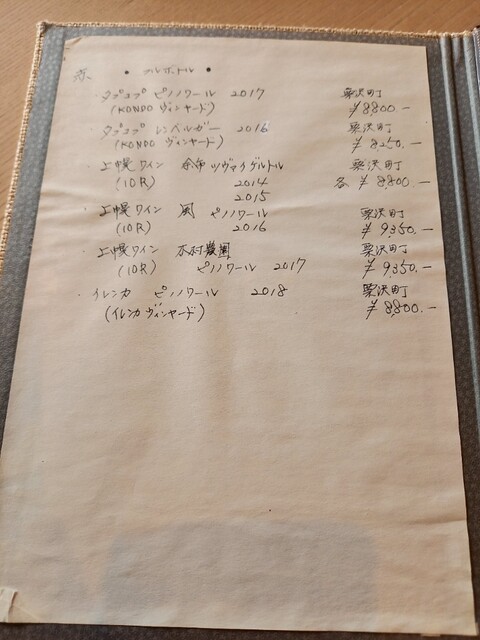 赤 • フルボトル •
・タプコプ ピノノワール 2017 栗沢町
(KONDO ヴィンヤード) ¥8800.—
タプコプ レンベルガー 2016 栗沢町
(KONDO ヴィンヤード) ¥8250.—
・上幌ワイン 余市ツヴァイゲルトル 栗沢町
(10R) 2014 各 ¥8,800.—
2015
・上幌ワイン 風 ピノノワール 栗沢町
(10R) 2016 ¥9,350.—
・上幌ワイン 木村農園 栗沢町
(10R) ピノノワール 2017 ¥9,350.—
・イレンカ ピノノワール 2018 栗沢町
(イレンカ ヴィンヤード) ¥8,800.—